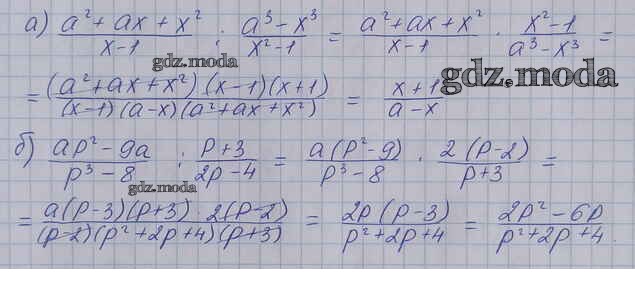 а) (a² + ax + x²)/(x-1) : (a³ - x³)/(x² - 1) = (a² + ax + x²)/(x-1) · (x² - 1)/(a³ - x³) =
gdz.moda
= ((a² + ax + x²)(x-1)(x+1))/((x-1)(a-x)(a² + ax + x²)) = (x+1)/(a-x)
gdz.moda
б) (ap² - 9a)/(p³ - 8) : (p+3)/(2p-4) = (a(p² - 9))/(p³ - 8) · (2(p-2))/(p+3) =
gdz.moda
= (a(p-3)(p+3) · 2(p-2))/((p-2)(p² + 2p + 4)(p+3)) = (2p(p-3))/(p² + 2p + 4) = (2p² - 6p)/(p² + 2p + 4).